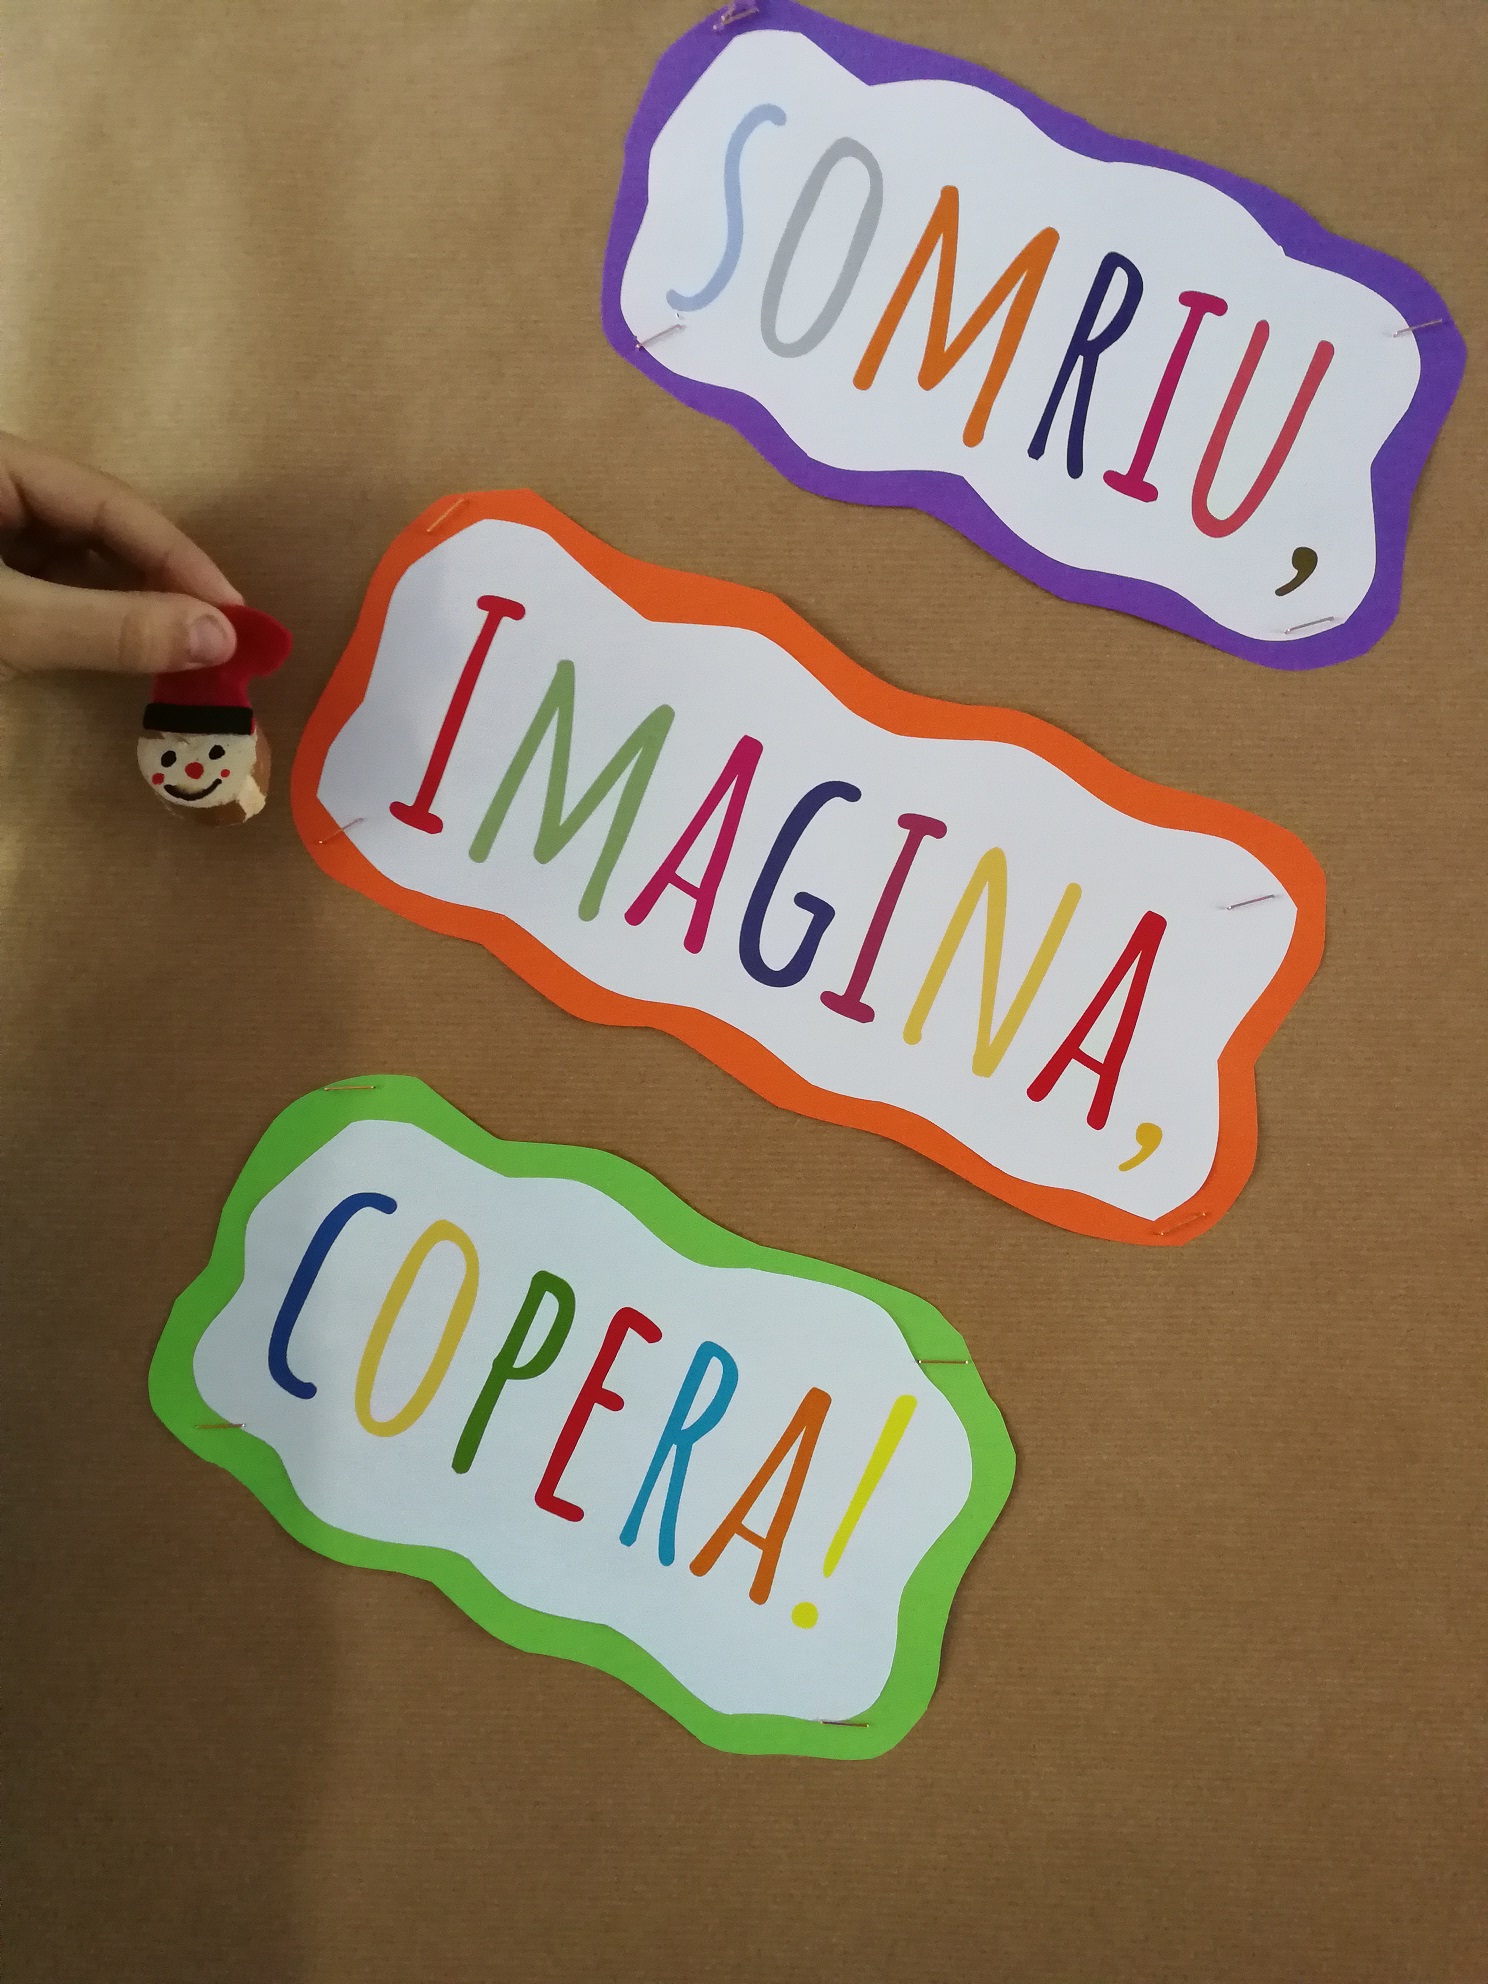 SOMRIU,
IMAGINA,
COPERA!